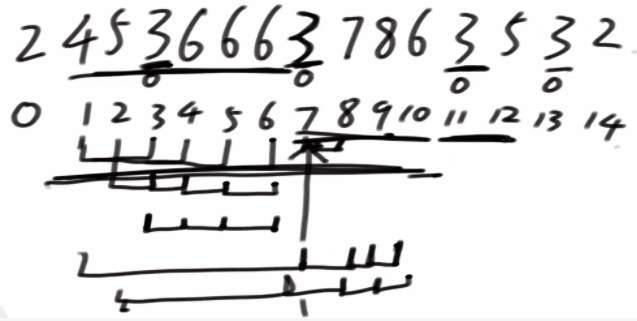 2 4 5 3 6 6 6 3 7 8 6 3 5 3 2
0 0 0 0
0 1 2 3 4 5 6 7 8 9 10 11 12 13 14